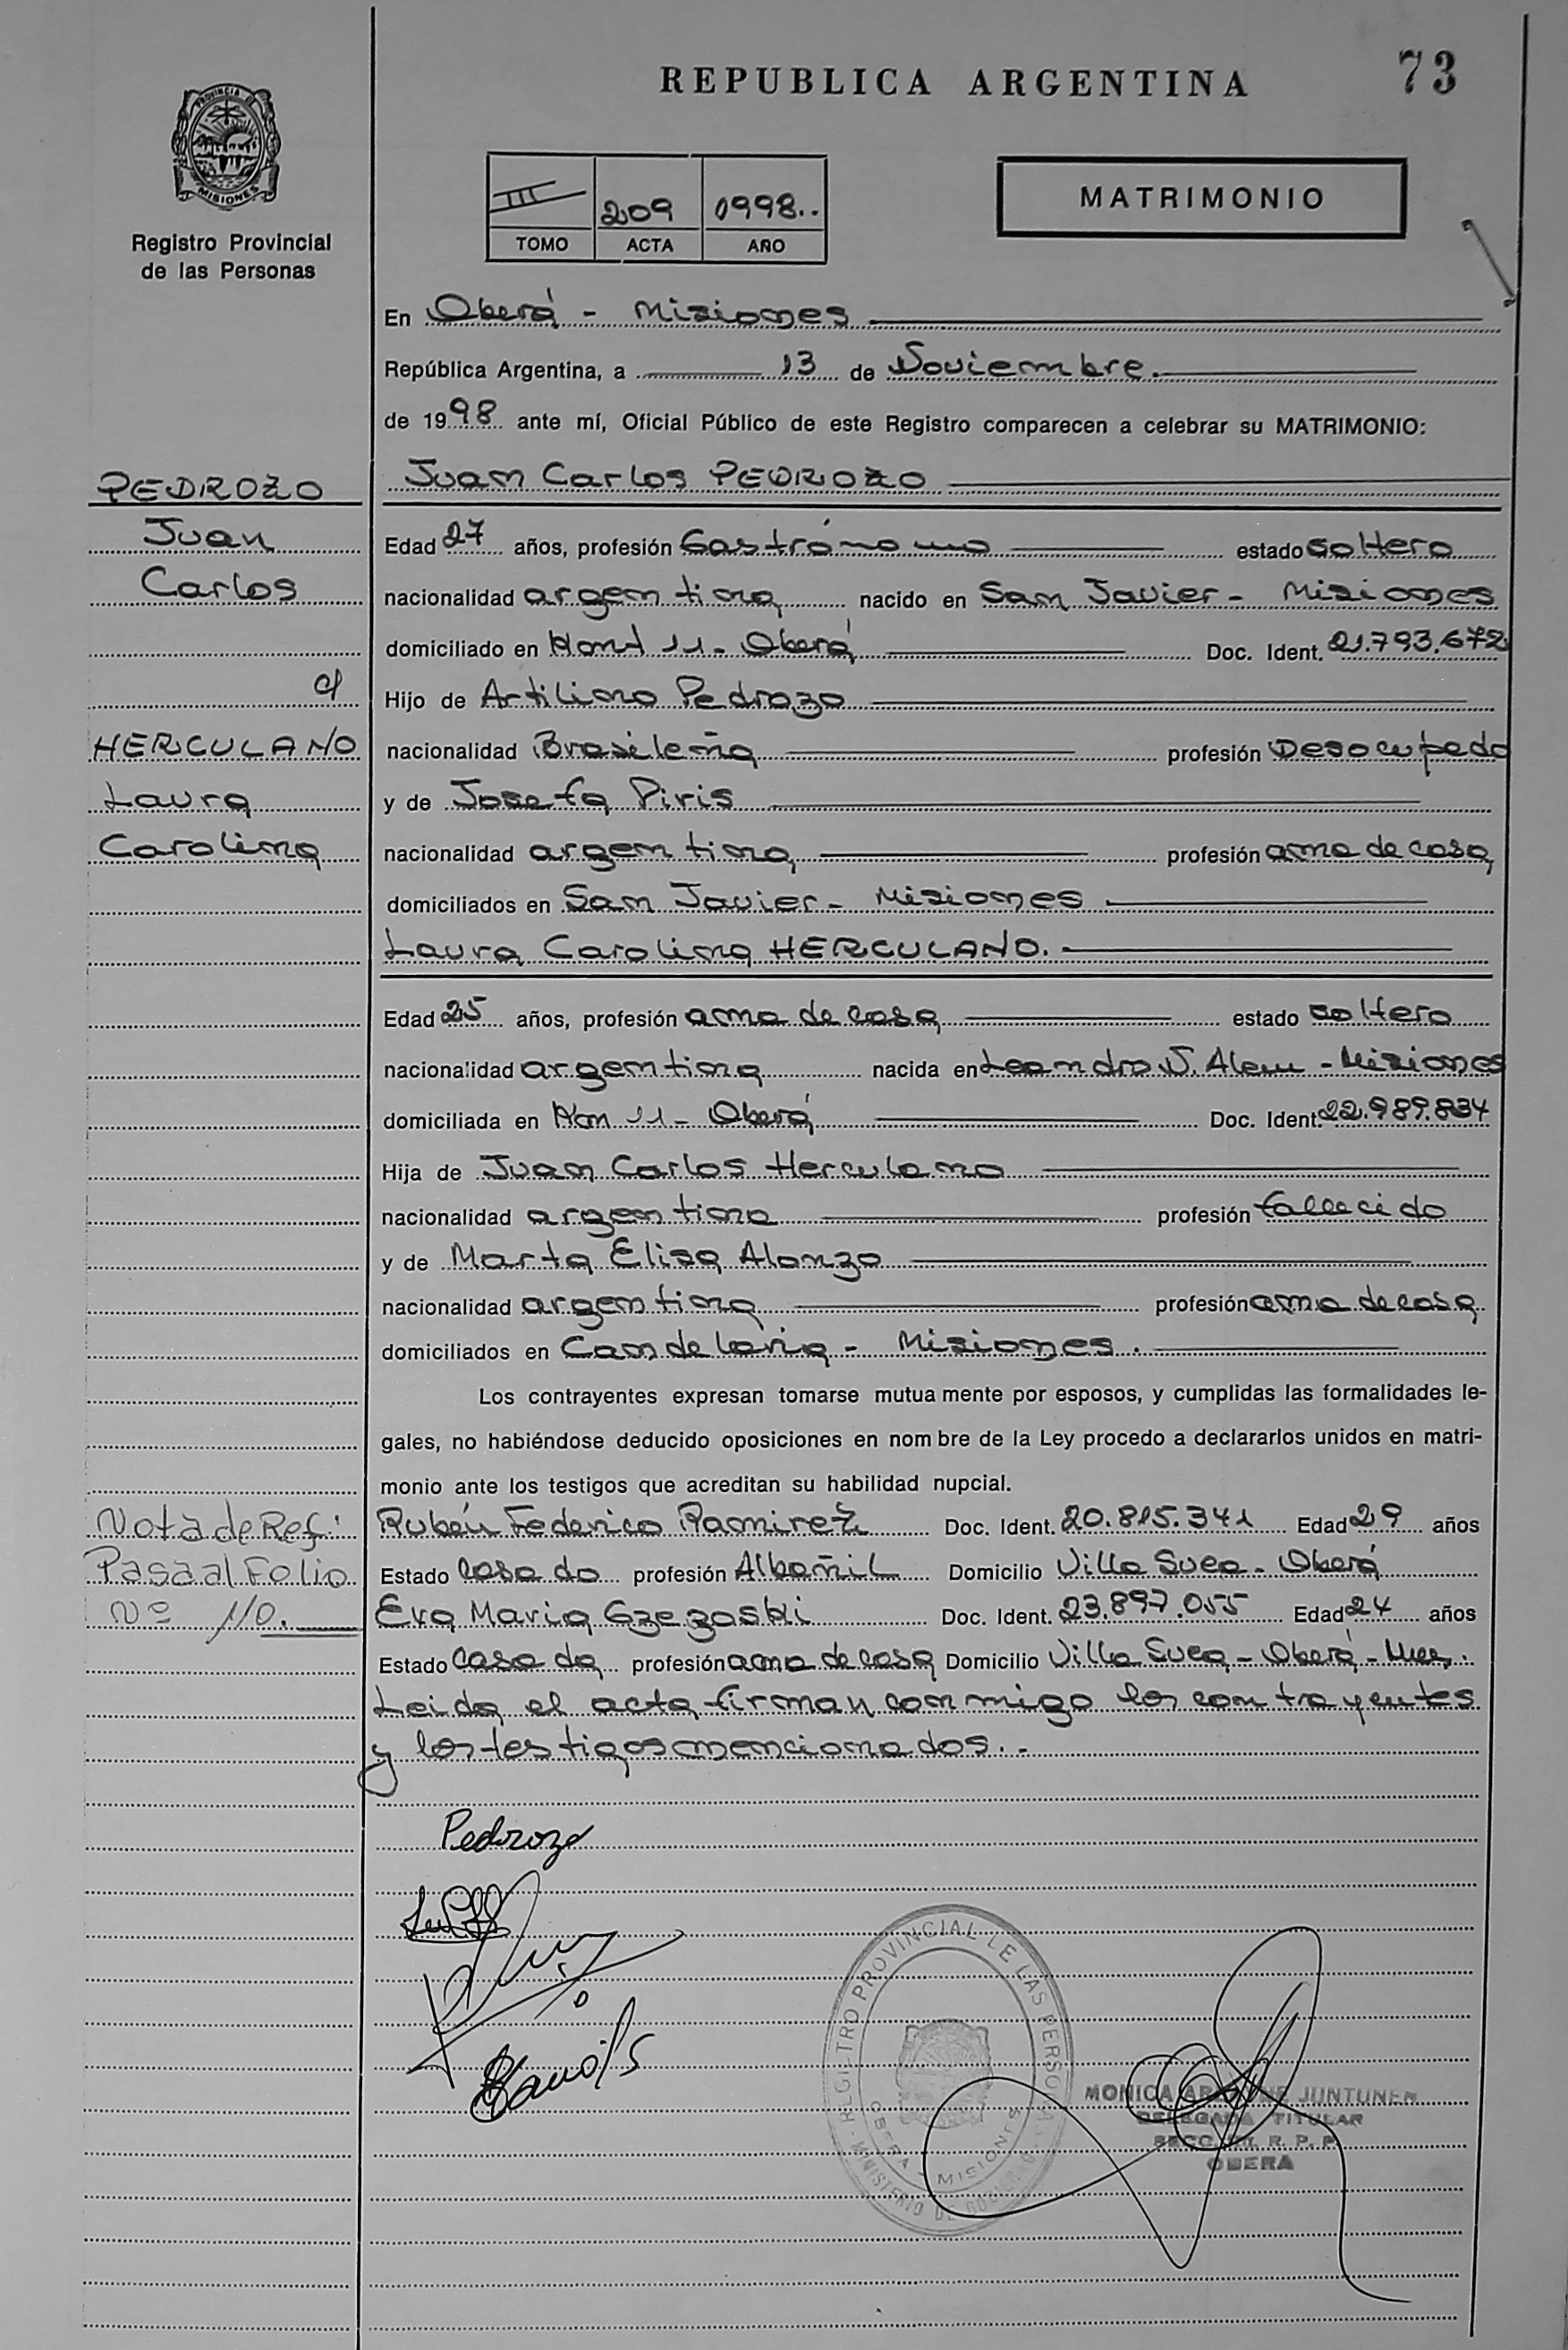 REPUBLICA ARGENTINA
73
PROVINCIA DE
MISIONES
Registro Provincial
de las Personas
III 209 1998..
TOMO ACTA AÑO
MATRIMONIO
En Oberá - Misiones
República Argentina, a 13 de Noviembre.
de 1998 ante mí, Oficial Público de este Registro comparecen a celebrar su MATRIMONIO:
PEDROZO
Juan
Carlos
c/
HERCULANO
Laura
Carolina
Juan Carlos PEDROZO
Edad 27 años, profesión Gastrónomo estado soltero
nacionalidad argentina nacido en San Javier - Misiones
domiciliado en 11 - Oberá Doc. Ident. 21.793.672
Hijo de Artilino Pedrozo
nacionalidad Brasileña profesión Desocupado
y de Josefa Piris
nacionalidad argentina profesión ama de casa
domiciliados en San Javier - Misiones
Laura Carolina HERCULANO.
Edad 25 años, profesión ama de casa estado soltero
nacionalidad argentina nacida en Leandro N. Alem - Misiones
domiciliada en 11 - Oberá Doc. Ident. 22.989.834
Hija de Juan Carlos Herculano
nacionalidad argentino profesión fallecido
y de Marta Elisa Alonzo
nacionalidad argentina profesión ama de casa
domiciliados en Candelaria - Misiones.
Los contrayentes expresan tomarse mutua mente por esposos, y cumplidas las formalidades le-
gales, no habiéndose deducido oposiciones en nom bre de la Ley procedo a declararlos unidos en matri-
monio ante los testigos que acreditan su habilidad nupcial.
Nota de Ref:
Pasa al Folio
Nº 110.
Rubén Federico Ramirez Doc. Ident. 20.815.341 Edad 29 años
Estado casado profesión Albañil Domicilio Villa Svea - Oberá
Eva Maria Gzegoski Doc. Ident. 23.897.055 Edad 24 años
Estado casada profesión ama de casa Domicilio Villa Svea - Oberá - Mnes.
Leida el acta firman conmigo los contrayentes
y los testigos mencionados.-
Pedrozo
REGISTRO PROVINCIAL DE LAS PERSONAS
OBERA - MISIONES
MINISTERIO DE GOBIERNO
MONICA JUNTUNEN
DELEGADA TITULAR
SECC. R. P. P.
OBERA